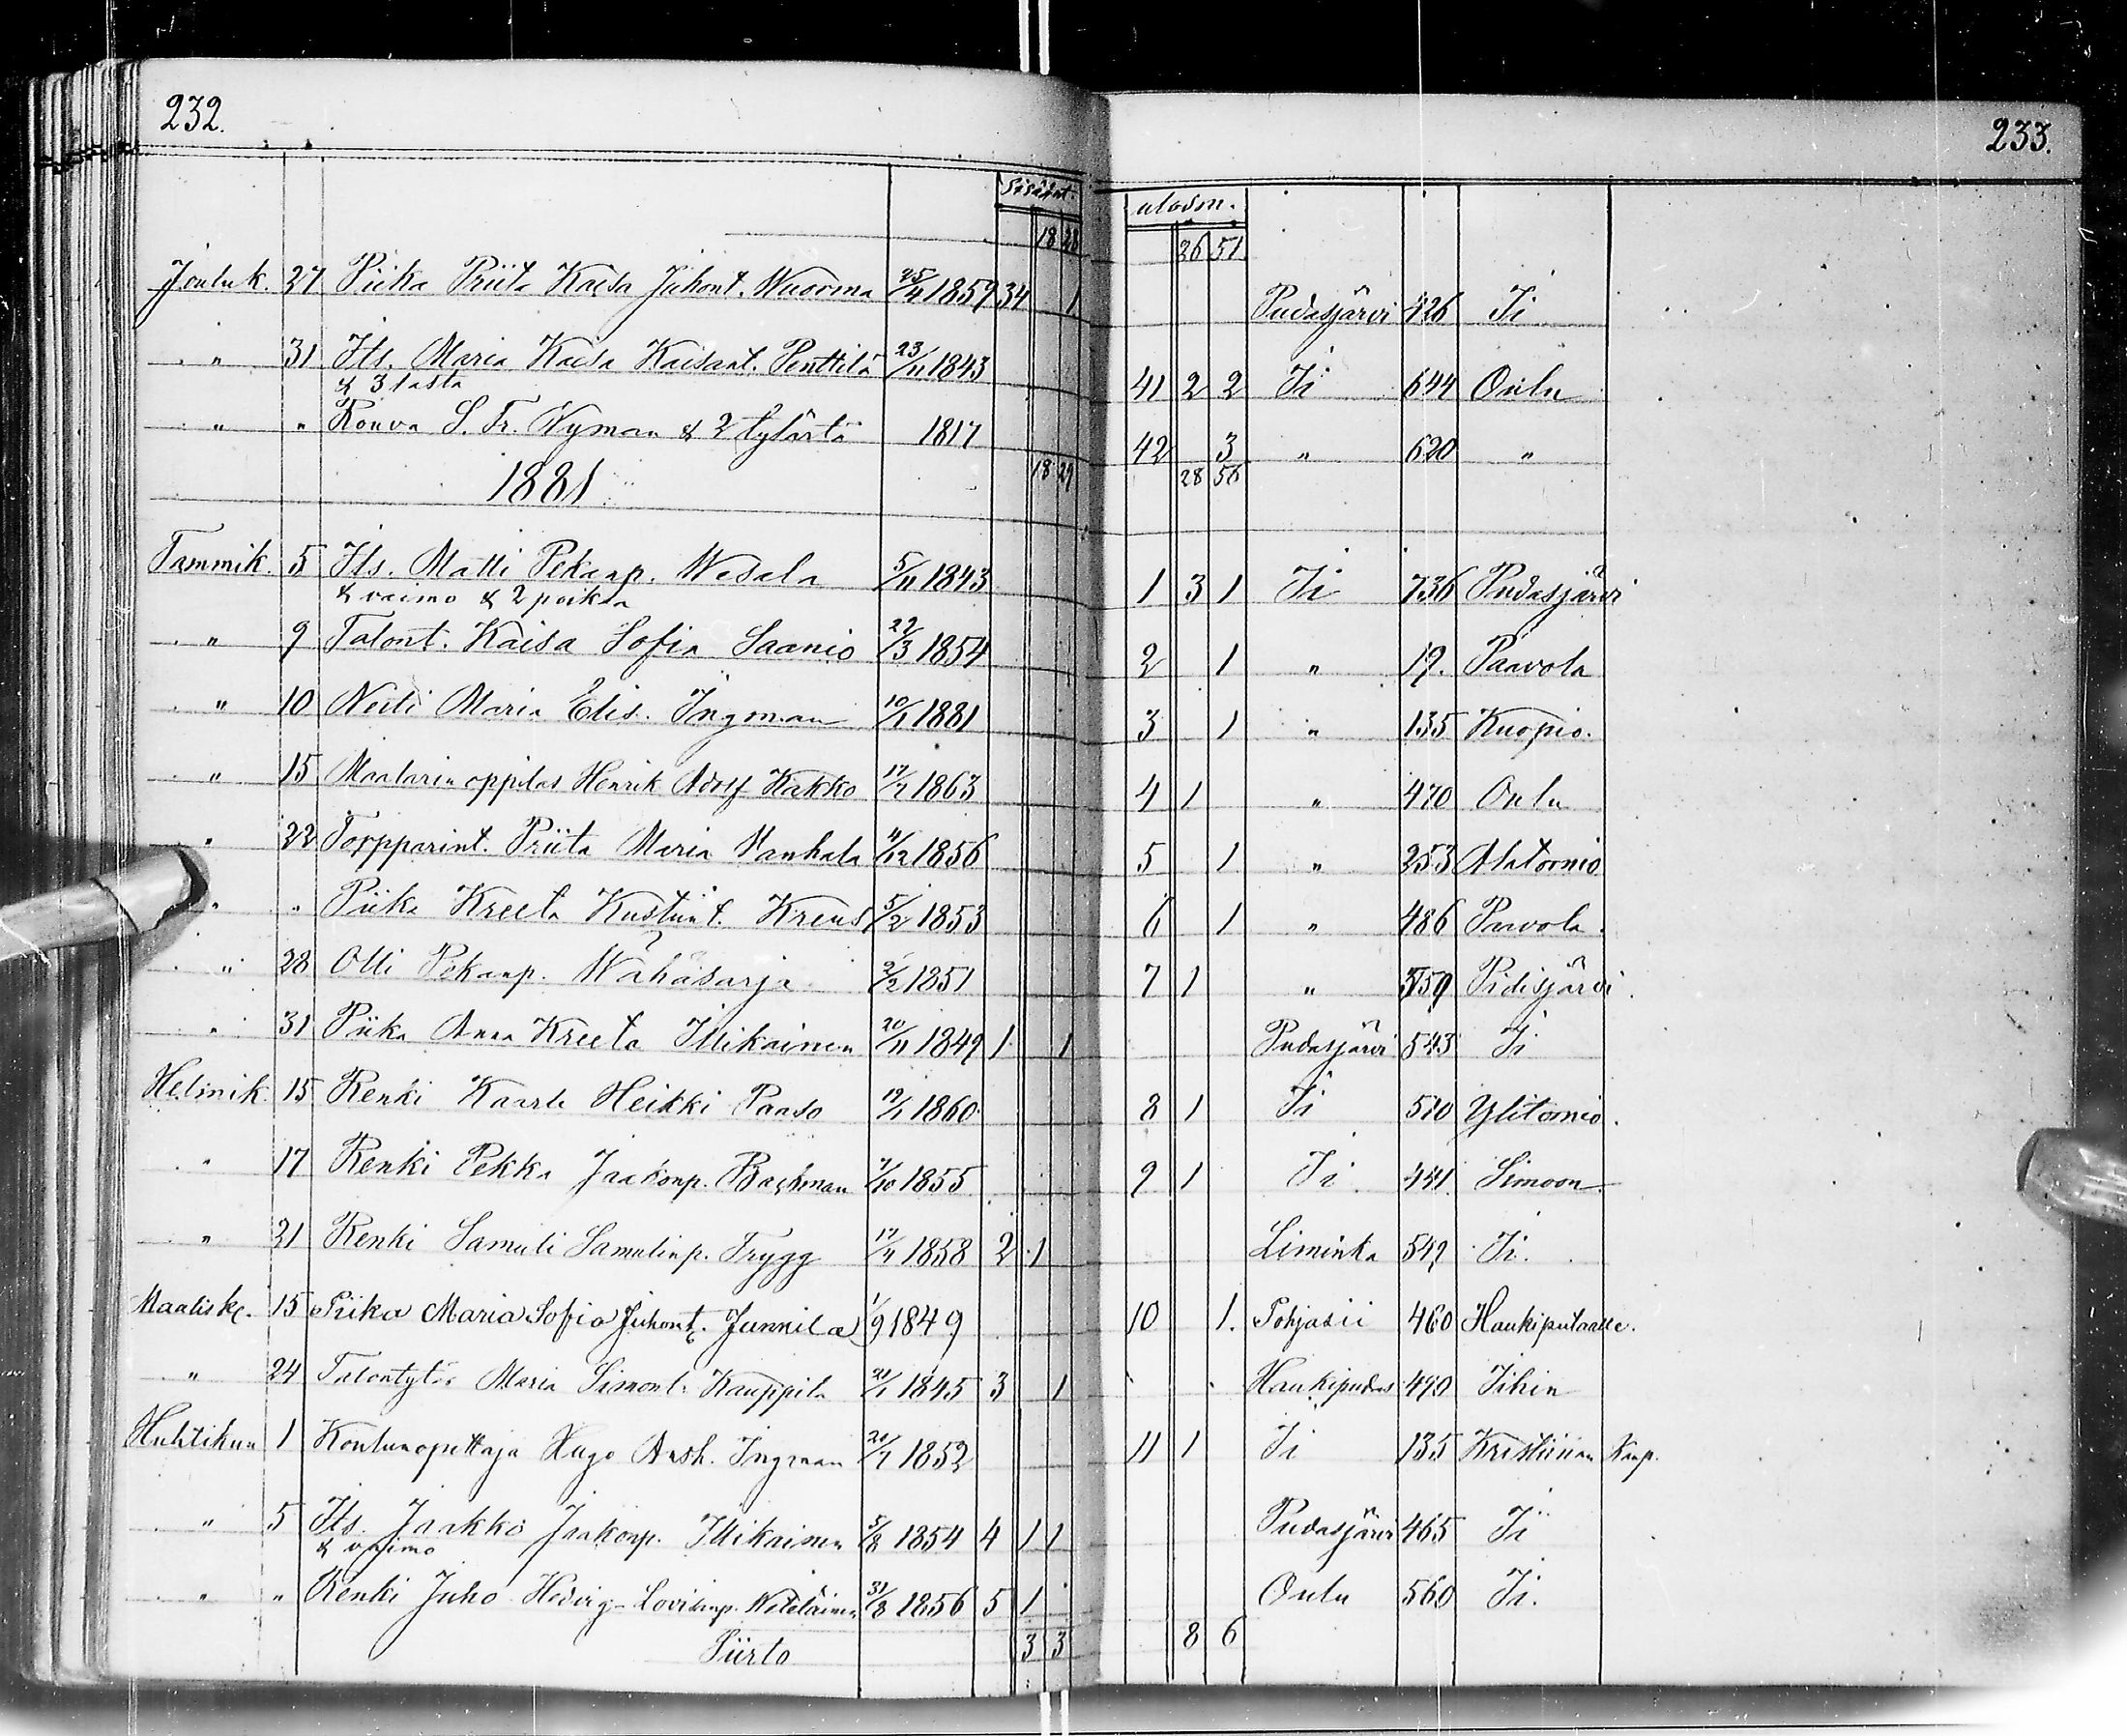 232.
233.
Sisään.
ulosm.
18 28
26 51
Jouluk. 27 Piika Priita Kaisa Juhont. Wuorma 25/4 1859 34 1 Pudasjärvi 426 Ii
" 31 Its. Maria Kaisa Kaisant. Penttilä 23/11 1843 41 2 2 Ii 644 Oulu
& 3 lasta
" " Rouva S. Fr. Nyman & 2 tytärtä 1817 42 3 " 620 "
1881 18 29 28 56
Tammik. 5 Its. Matti Pekanp. Wesala 5/11 1843 1 3 1 Ii 736 Pudasjärvi
& vaimo & 2 poikaa
" 9 Talont. Kaisa Sofia Saanio 22/3 1854 2 1 " 19. Paavola
" 10 Neiti Maria Elis. Ingman 10/1 1881 3 1 " 135 Kuopio.
" 15 Maalarin oppilas Henrik Adolf Kakko 17/7 1863 4 1 " 470 Oulu
" 22 Torpparint. Priita Maria Hanhela 4/12 1856 5 1 " 253 Alatornio
" " Piika Kreeta Kustuut. Kreus 5/2 1853 6 1 " 486 Paavola.
" 28 Olli Pekanp. Wähäsarja 2/2 1851 7 1 " 559 Pidisjärvi.
" 31 Piika Anna Kreeta Illikainen 20/11 1849 1 1 Pudasjärvi 543 Ii
Helmik. 15 Renki Kaarle Heikki Paaso 19/1 1860 8 1 Ii 510 Ylitornio.
" 17 Renki Pekka Jaakonp. Backman 7/10 1855 9 1 Ii 441. Simoon
" 21 Renki Samuli Samulinp. Trygg 17/4 1858 2 1 Liminka 549 Ii.
Maalisk. 15 Piika Maria Sofia Juhont. Junnila 1/9 1849 10 1. Pohjasii 460 Haukiputaalle.
" 24 Talontytär Maria Simont. Kauppila 21/1 1845 3 1 Haukipudas 490 Iihin
Huhtikuu 1 Koulunopettaja Hugo Ansh. Ingman 20/7 1852 11 1 Ii 135 Kristiinan Kaup.
" 5 Its. Jaakko Jaakonp. Illikainen 5/8 1854 4 1 1 Pudasjärvi 465 Ii
& vaimo
" " Renki Juho Hedvig-Lovisanp. Weteläinen 31/8 1856 5 1 Oulu 560 Ii.
Siirto 3 3 8 6